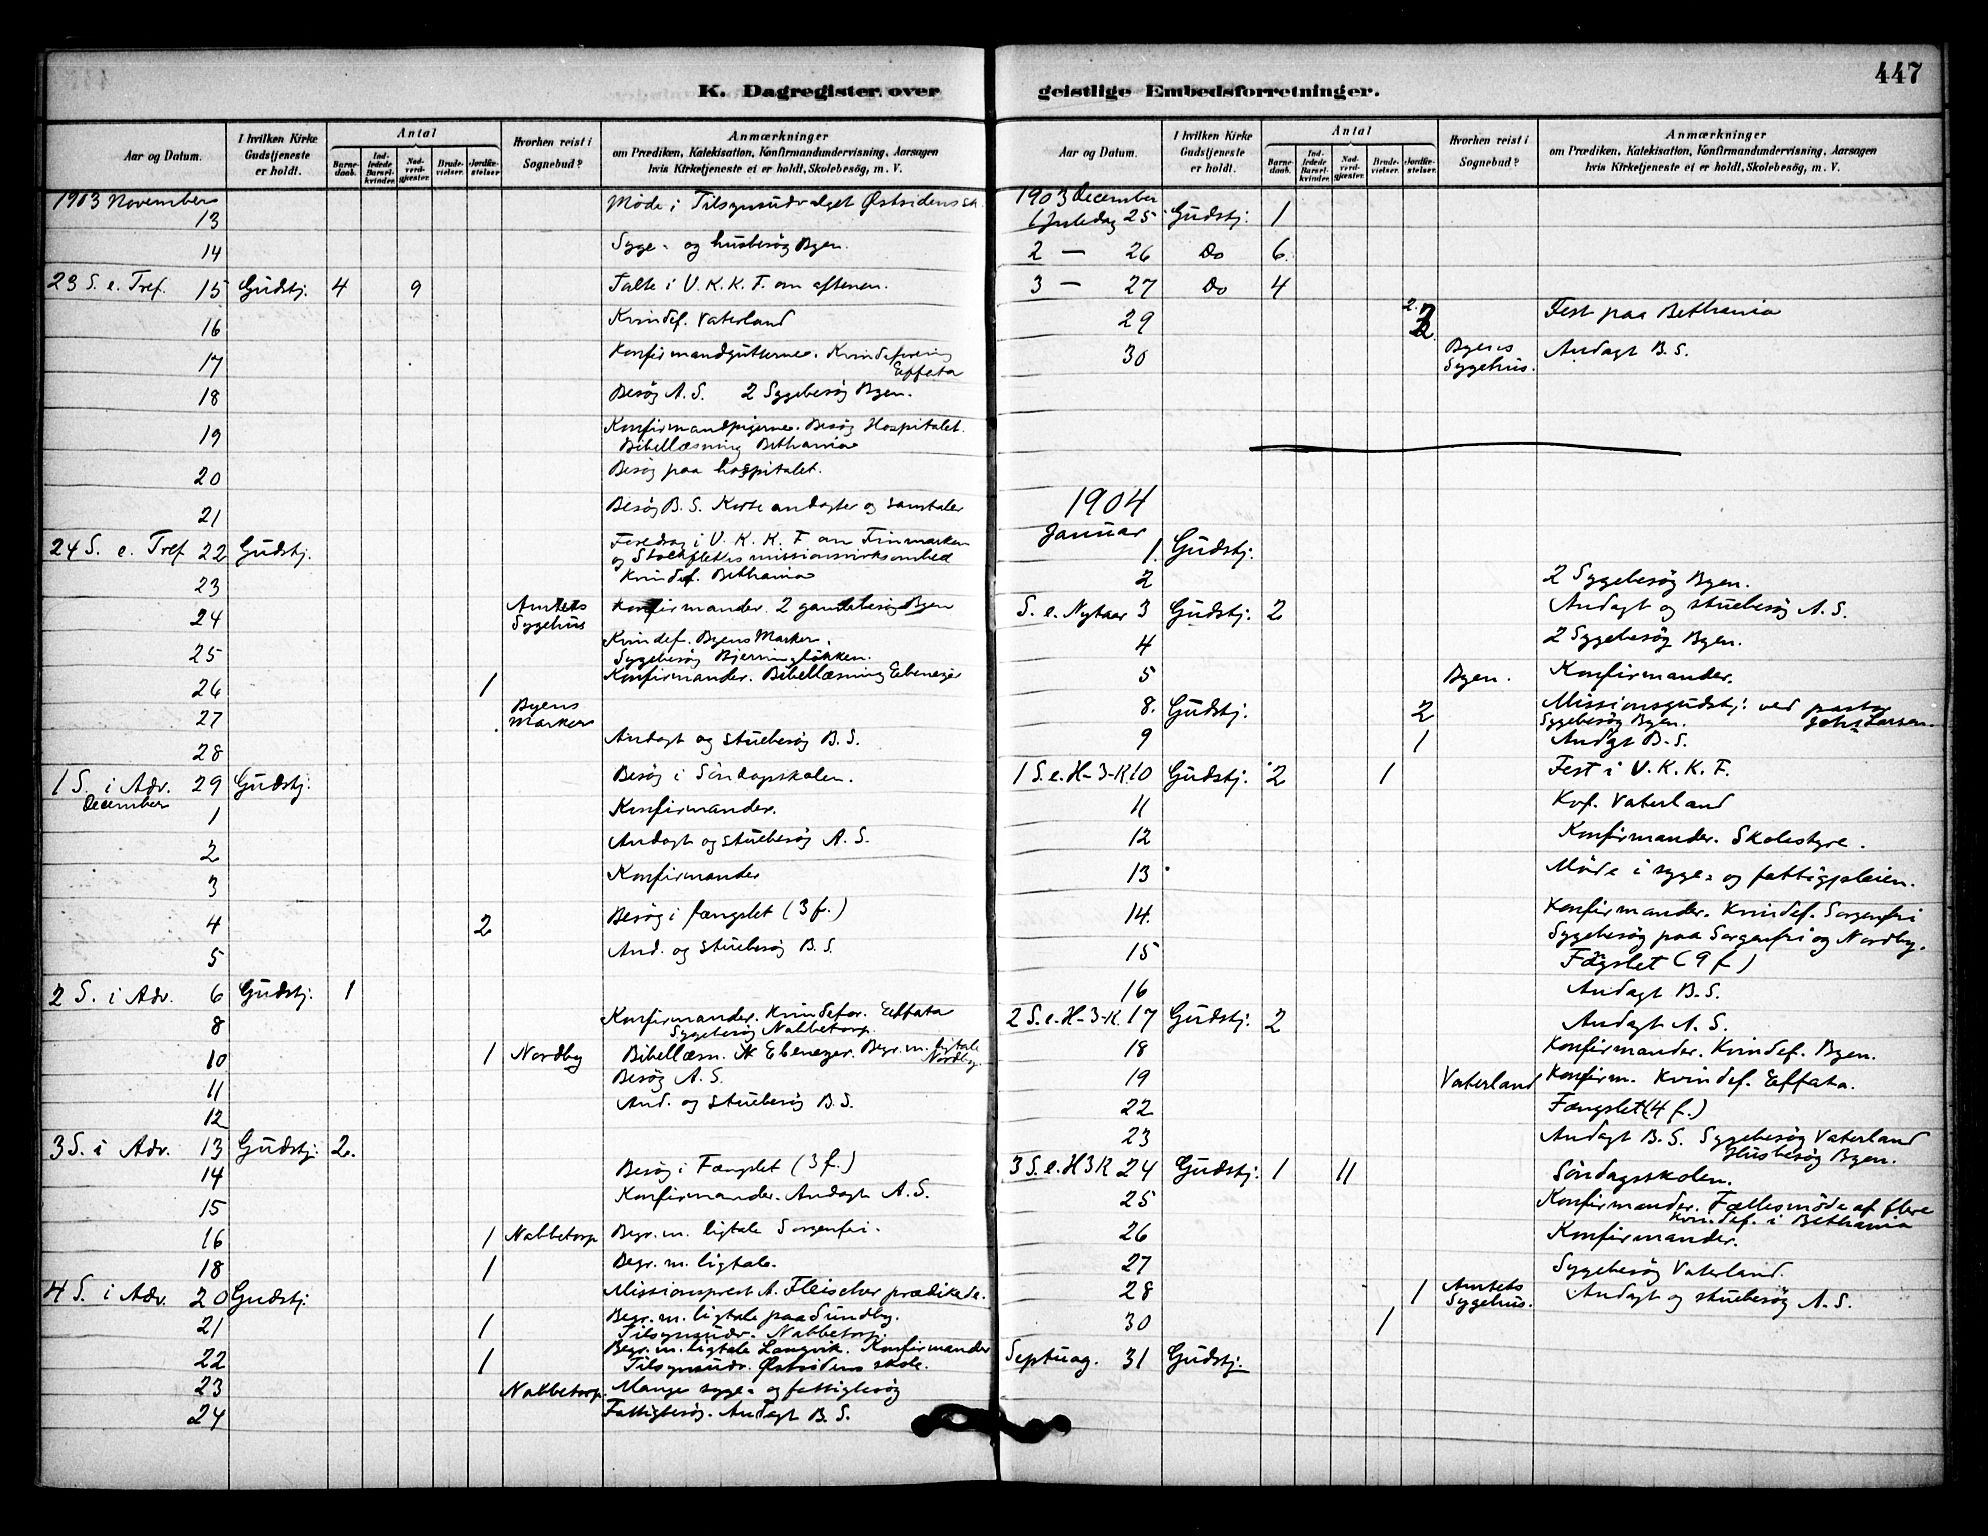 447
K. Dagregister over geistlige Embedsforretninger.
Aar og Datum. | I hvilken Kirke Gudstjeneste er holdt. | Antal | Barne-daab. | Ind-ledede Barsel-kvinder. | Nad-verd-gjester. | Brude-vielser. | Jordfæ-stelser | Hvorhen reist i Sognebud? | Anmærkninger om Prædiken, Katekisation, Konfirmandundervisning, Aarsagen hvis Kirketjeneste ei er holdt, Skolebesög, m. V.
1903 November
13 Møde i Tilsynsudvalget Østsidens sk.
14 Syge- og husbesøg Byen.
23 S. e. Tref. 15 Gudstj. 4 9 Talte i U. K. K. F. om aftenen.
16 Kvindef. Vaterland
17 Konfirmandgutterne. Kvindeforening
Effata
18 Besøg A. S. 2 Sygebesøg Byen.
19 Konfirmandpigerne. Besøg Hospitalet.
Bibellæsning Bethania
20 Besøg paa hospitalet.
21 Besøg B. S. Korte andagter og samtaler
24 S. e. Tref 22 Gudstj. Foredrag i U. K. K. F om Finmarken
og Stockfleths missionsvirksomhed
23 Kvindef. Bethania
24 Amtets Sygehus Konfirmander. 2 gamlebesøg Byen
25 Kvindef. Byens Marker.
Sygebesøg Bjerringløkken.
26 1 Konfirmander. Bibellæsning Ebenezer
27 Byens Marker
28 Andagt og stuebesøg B. S.
1 S. i Adv. 29 Gudstj. Besøg i Søndagsskolen.
December
1 Konfirmander.
2 Andagt og stuebesøg A. S.
3 Konfirmander
4 2 Besøg i fængslet (3 f.)
5 And. og stuebesøg B. S.
2 S. i Adv. 6 Gudstj. 1
8 Konfirmander. Kvindefor. Effata
Sygebesøg Nabbetorp.
10 1 Nordby Bibellæsn. Ebenezer. Begr. m. ligtale
Nordby.
11 Besøg A. S.
12 And. og stuebesøg B. S.
3 S. i Adv. 13 Gudstj. 2.
14 Besøg i Fængslet (3 f.)
15 Konfirmander. Andagt A. S.
16 1 Nabbetorp Begr. m. ligtale Sorgenfri.
18 1 Begr. m. ligtale.
4 S. i Adv. 20 Gudstj. Missionsprest A. Fleischer prædikede.
21 1 Begr. m. ligtale paa Sundby.
Tilsynsudv. Nabbetorp.
22 1 Begr. m. ligtale Langvik. Konfirmander
Tilsynsudv. Østsidens skole.
23 Nabbetorp. Mange syge- og fattigbesøg
24 Fattigbesøg. Andagt B. S.
Aar og Datum. | I hvilken Kirke Gudstjeneste er holdt. | Antal | Barne-daab. | Ind-ledede Barsel-kvinder. | Nad-verd-gjester. | Brude-vielser. | Jordfæ-stelser. | Hvorhen reist i Sognebud? | Anmærkninger om Prædiken, Katekisation, Konfirmandundervisning, Aarsagen hvis Kirketjeneste ei er holdt, Skolebesög, m. V.
1903 December
1 Juledag 25 Gudstj. 1
2 — 26 Do 6.
3 — 27 Do 4
29 2. 2 Fest paa Bethania
30 Byens Sygehus. Andagt B. S.
1904
Januar
1. Gudstj.
2 2 Sygebesøg Byen.
S. e. Nytaar 3 Gudstj. 2 Andagt og stuebesøg A. S.
4 2 Sygebesøg Byen.
5 Byen. Konfirmander.
8. Gudstj. 2 Missionsgudstj. ved pastor
Sygebesøg Byen. Johs Larsen.
9 1 Andagt B. S.
1 S. e. H-3-K. 10 Gudstj. 2 1 Fest i U. K. K. F.
11 Kvf. Vaterland
12 Konfirmander. Skolestyre.
13 Møde i syge- og fattigpleien.
14. Konfirmander. Kvindef. Sorgenfri
Sygebesøg paa Sorgenfri og Nordby.
15 Fægslet (9 f)
16 Andagt B. S.
2 S. e. H-3-K. 17 Gudstj. 2 Andagt A. S.
18 Konfirmander. Kvindef. Byen.
19 Vaterland Konfirm. Kvindef. Effata.
22 Fængslet (4 f.)
23 Andagt B. S. Sygebesøg Vaterland
Husbesøg Byen.
3 S. e. H 3 K 24 Gudstj. 1 11 Søndagsskolen.
25 Konfirmander. Fællesmøde af flere
Kvindef. i Bethania
26 Konfirmander.
27 Sygebesøg Vaterland.
28 1 Amtets Sygehus. Andagt og stuebesøg A. S.
30 1
Septuag. 31 Gudstj.